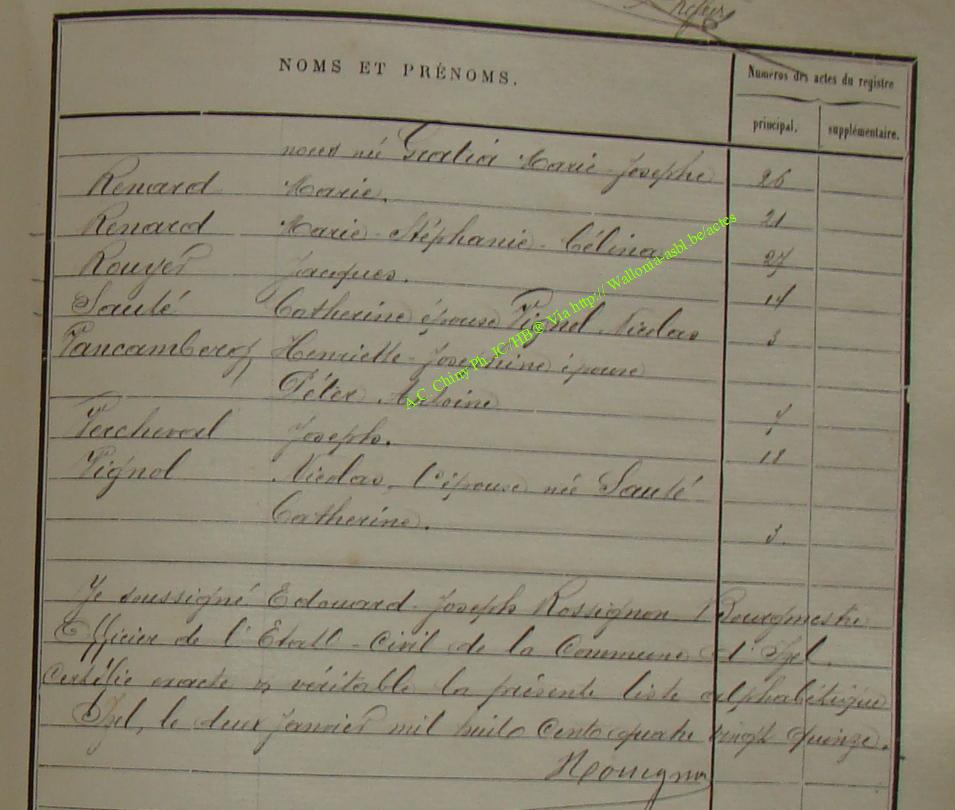 NOMS ET PRÉNOMS.
Numéros des actes du registre
principal. supplémentaire.
née Gratia Marie-Josephe 26
Renard Marie. 21
Renard Marie-Stéphanie-Célina 27
Rouyer Jacques. 14
Sauté Catherine épouse Pignol Nicolas 3
Vancamberg Henriette-Josephine épouse
Péter Antoine 7
Percheval Joseph. 18
Pignol Nicolas, l'épouse née Sauté
Catherine. 3.
Je soussigné Edouard-Joseph Rossignon Bourgmestre
Officier de l'Etat-Civil de la Commune d'Izel.
Certifie exacte & véritable la présente liste alphabétique
Izel, le deux Janvier mil huit cent quatre vingt quinze.
A.C. Chiny Ph. JC/HB@ Via http:// Wallonia-asbl.be/actes